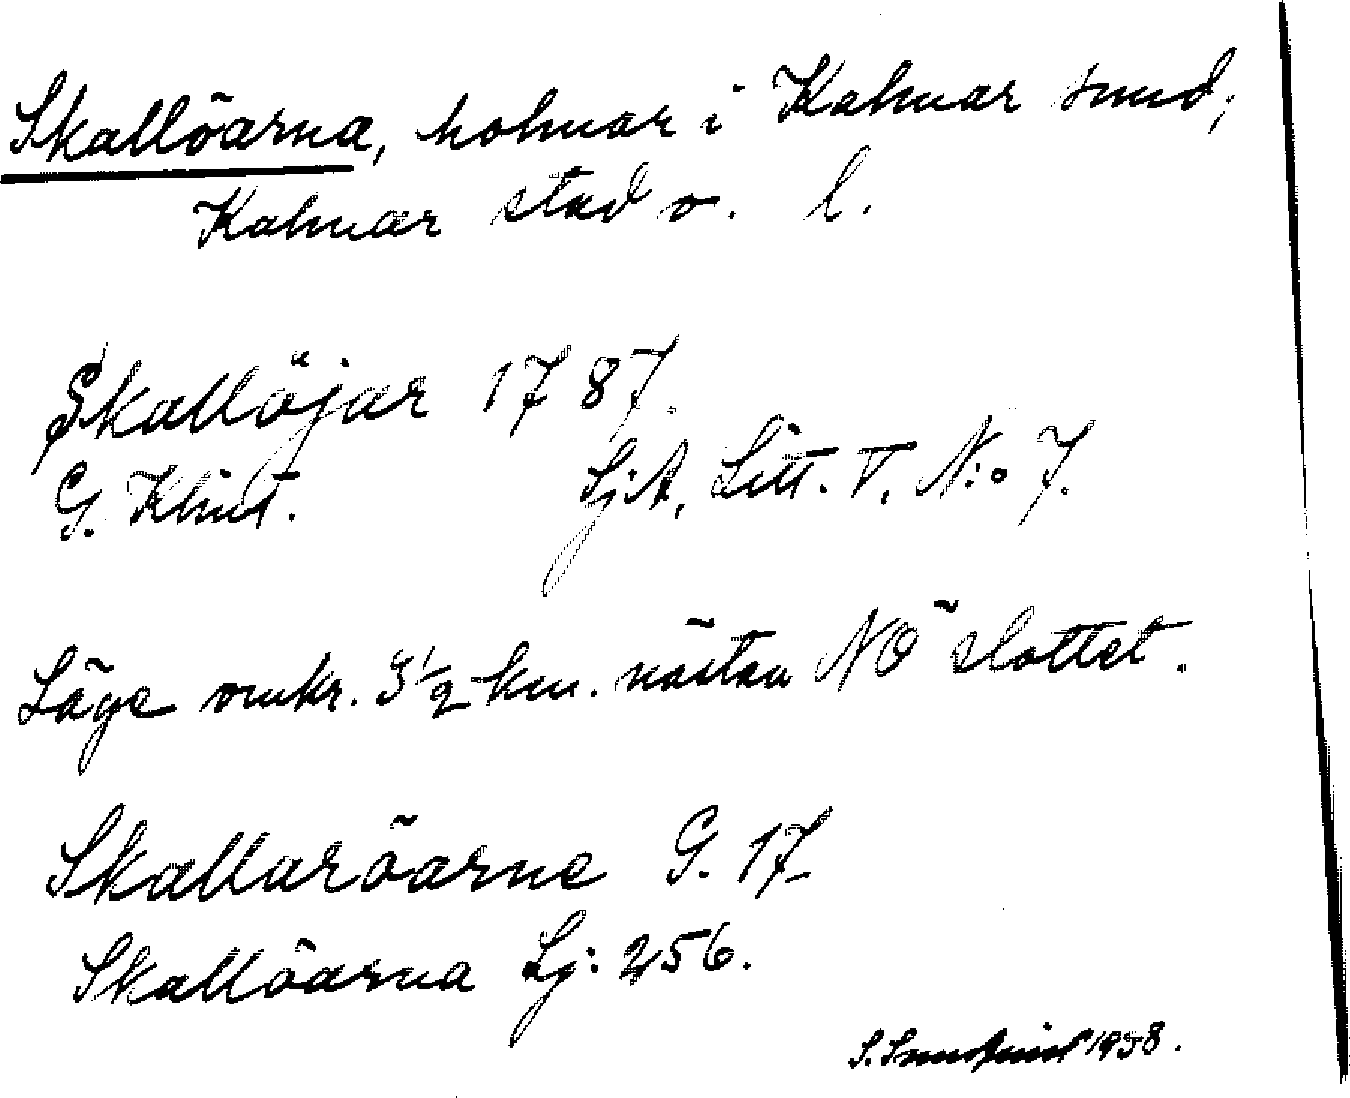 Skallöarna, holmar i Kalmar sund,
Kalmar stad o. l.
Skallöjar 1787.
G. Klint. Sj:A, Litt. V, N:o 7.
Läge omkr. 3 1/2 km. nästan NO slottet.
Skallaröarne G. 17
Skallöarna Lj: 256.
S. 1958.